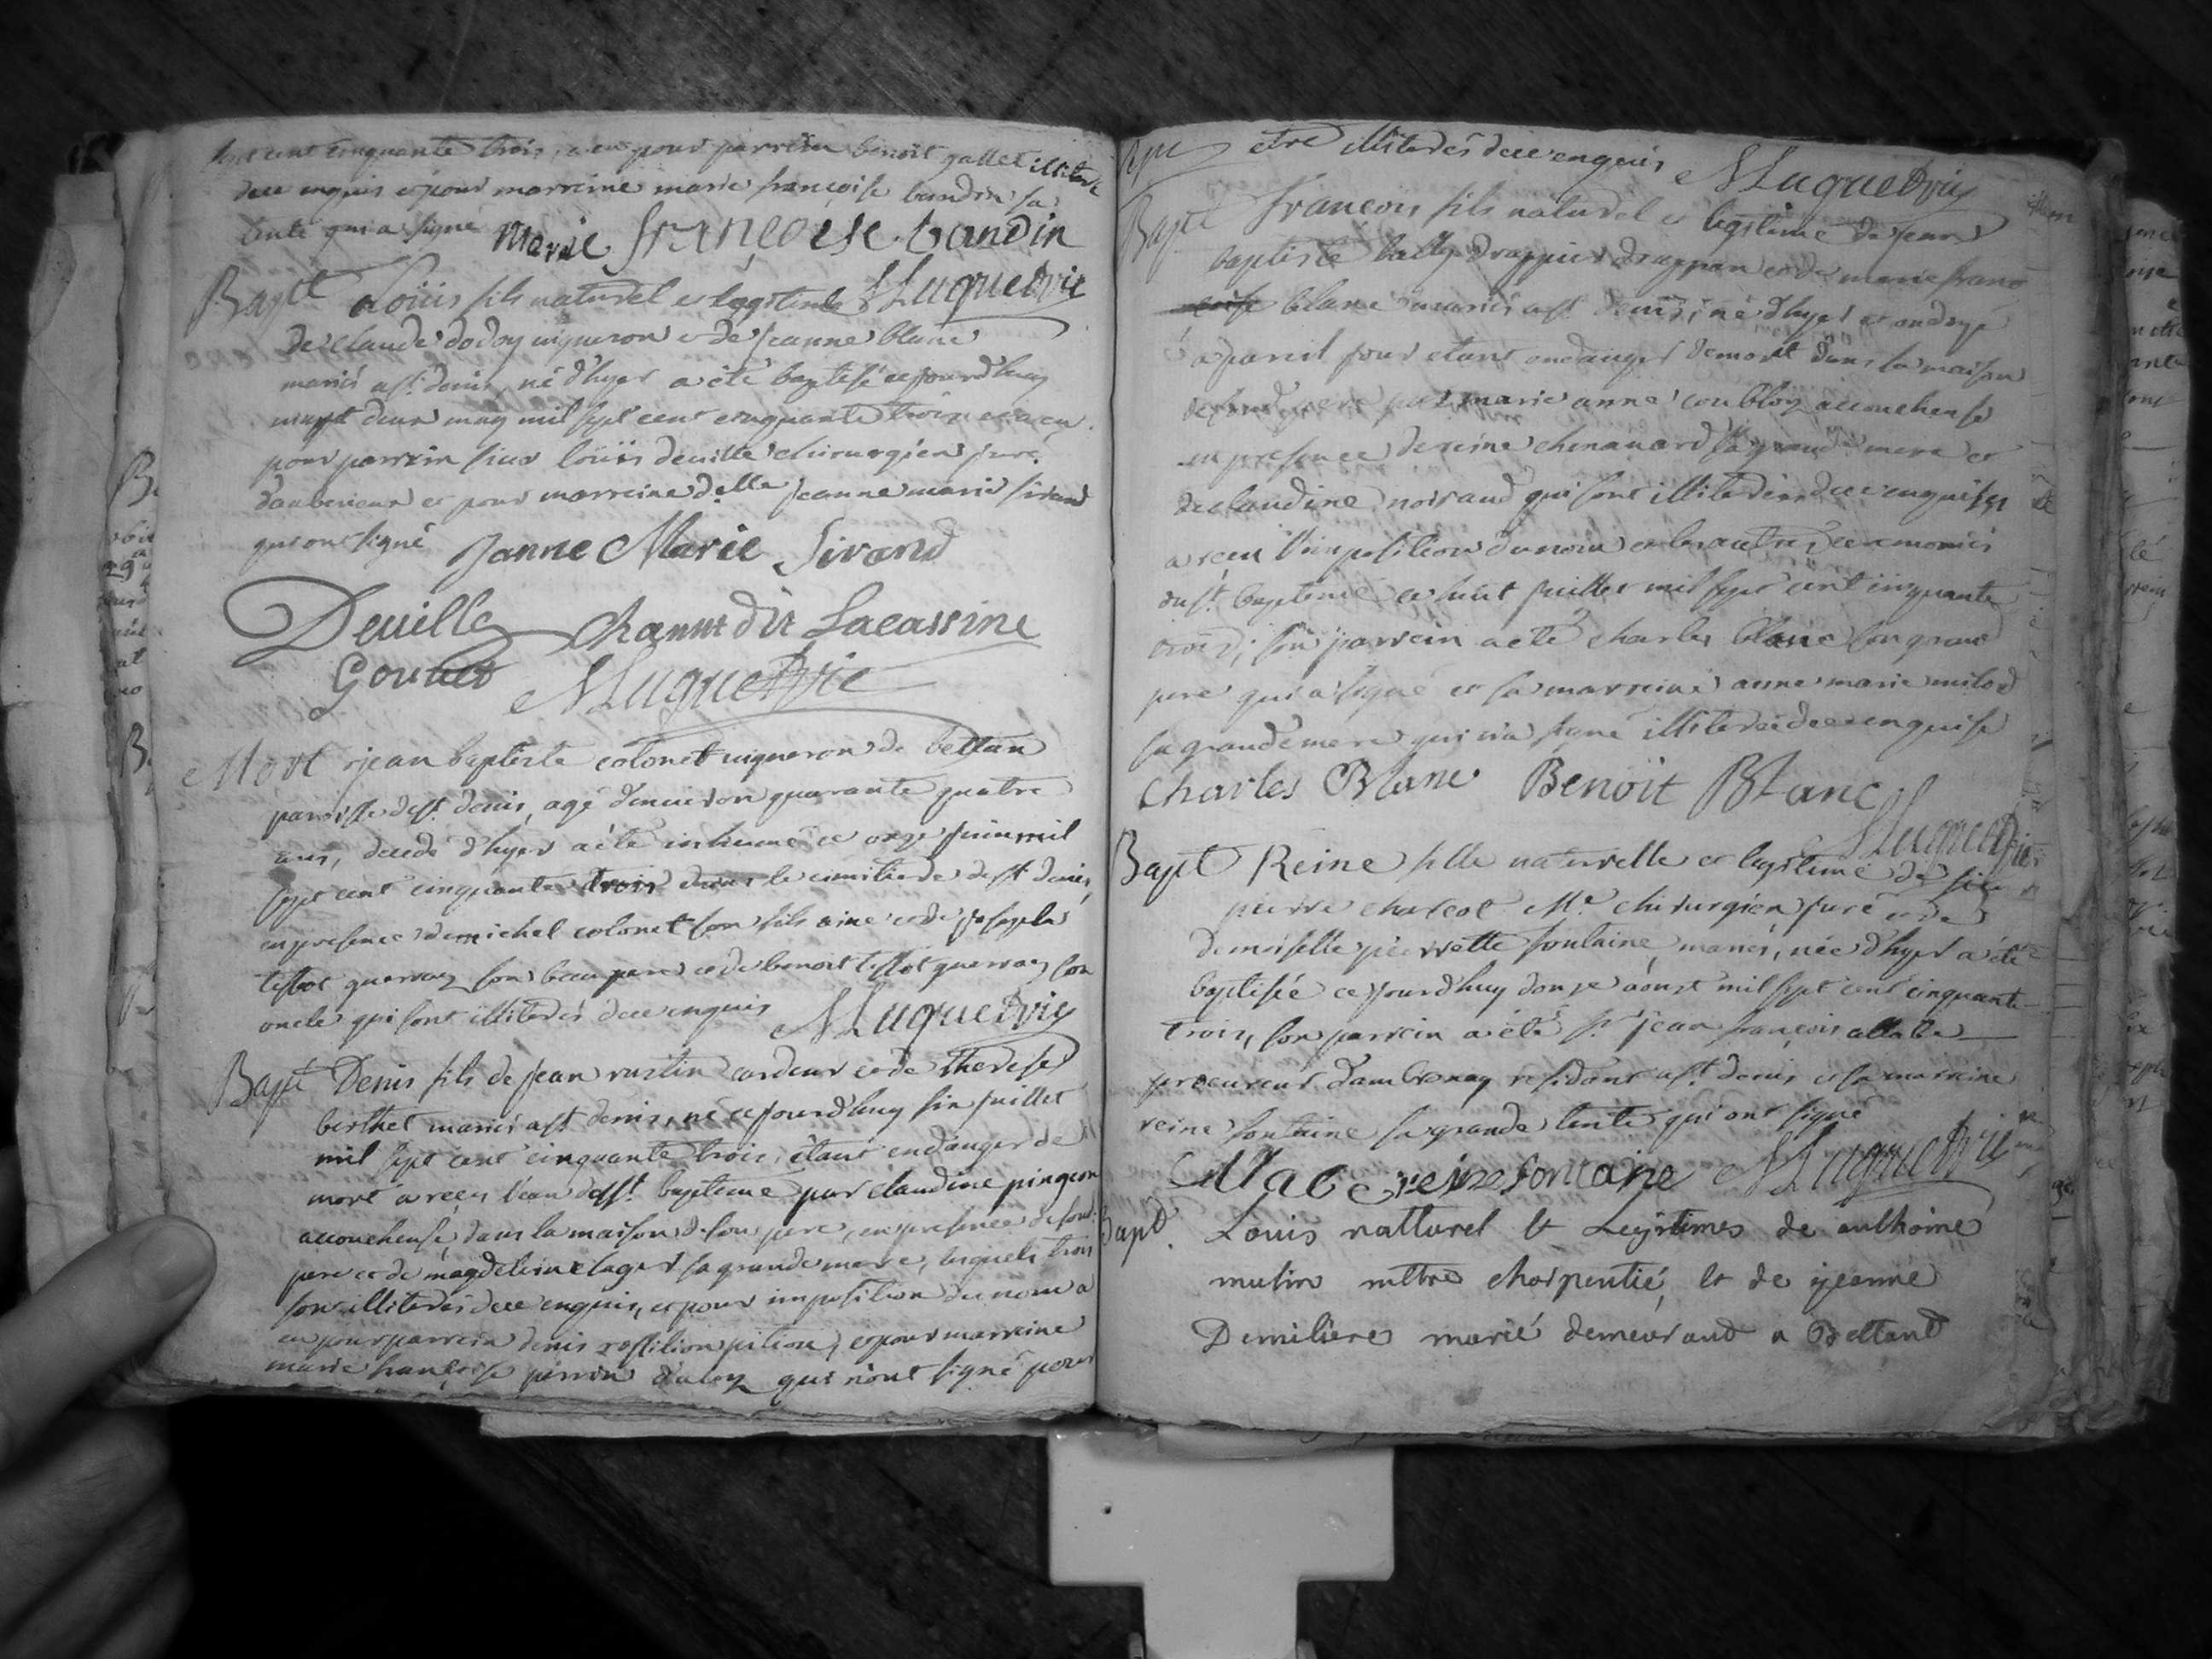 sept cent cinquante trois, a eu pour parrein benoit gallet illiteré
dece enquis et pour marreine marie françoise baudin sa
tente qui a signé
Marie françoise baudin
Bapt Loüis fils naturel et legitime
MuguetDrie
de claude dodoy vigneron et de jeanne blanc
mariés a st. denis, né d'hyer a été baptisé ce jourd'huy
deux may mil sept cent cinquante trois et a eu
pour parrein sieur loüis deville chirurgien juré
d'amberieux et pour marreine d.elle jeanne marie sirand
qui ont signé
Janne Marie Sirand
Deville
chanut dit Lacassine
MuguetDrie
Mort jean baptiste colonet vigneron de bettan
paroisse de st. denis, agé d'environ quarante quatre
ans, decedé d'hyer a été inhumé ce onze juin mil
sept cent cinquante trois dans le cimitiere de st denis,
en presence de michel colonet son fils ainé et de joseph
son beau pere et de benoit son
oncle qui sont illiterés dece enquis
MuguetDrie
Bapt Denis fils de jean rustin cardeur et de therese
berthet mariés a st. denis, né ce jourd'huy six juillet
mil sept cent cinquante trois, étant en danger de
mort a reçu l'eau du st. bapteme par claudine pingeon
accoucheuse, dans la maison de son pere, en presence de son
pere et de magdeleine sa grande mere, lesquels trois
sont illiterés dece enquis, et pour imposition du nom a
eu pour parrein denis et pour marreine
marie françoise perrin qui n'ont signé pour
etre illiterés dece enquis
MuguetDrie
Bapt François fils naturel et legitime de jean
baptiste bally drappier drappan et de marie franç
blanc mariés a st. denis, né d'hyer et ondoyé
a pareil jour etant en danger de mort dans la maison
de sond. pere par marie anne accoucheuse
en presence de reine chenavard sa grande mere et
de claudine noiraud qui sont illiterées dece enquises
a reçu l'imposition du nom et les autres ceremonies
du st. bapteme ce huit juillet mil sept cent cinquante
trois, son parrein a eté charles blanc son grand
pere qui a signé et sa marreine anne marie milord
sa grande mere qui n'a signé illiterée dece enquise
Charles Blanc Benoit Blanc
MuguetDrie
Bapt Reine fille naturelle et legitime de sieur
pierre charcot Me. chirurgien juré et de
demoiselle pierrette fontaine, mariés, née d'hyer a été
baptisée ce jourd'huy douze aoust mil sept cent cinquante
trois, son parrein a été sr. jean françois allabe
procureur d'ambronay residant a st. denis et sa marreine
reine fontaine sa grande tente qui ont signé
reine fontaine MuguetDrie
Bapt. Louis natturel et Legitimes de anthoine
mutin mttre charpentié, et de jeanne
Demiliere marié demeurand a Bettand